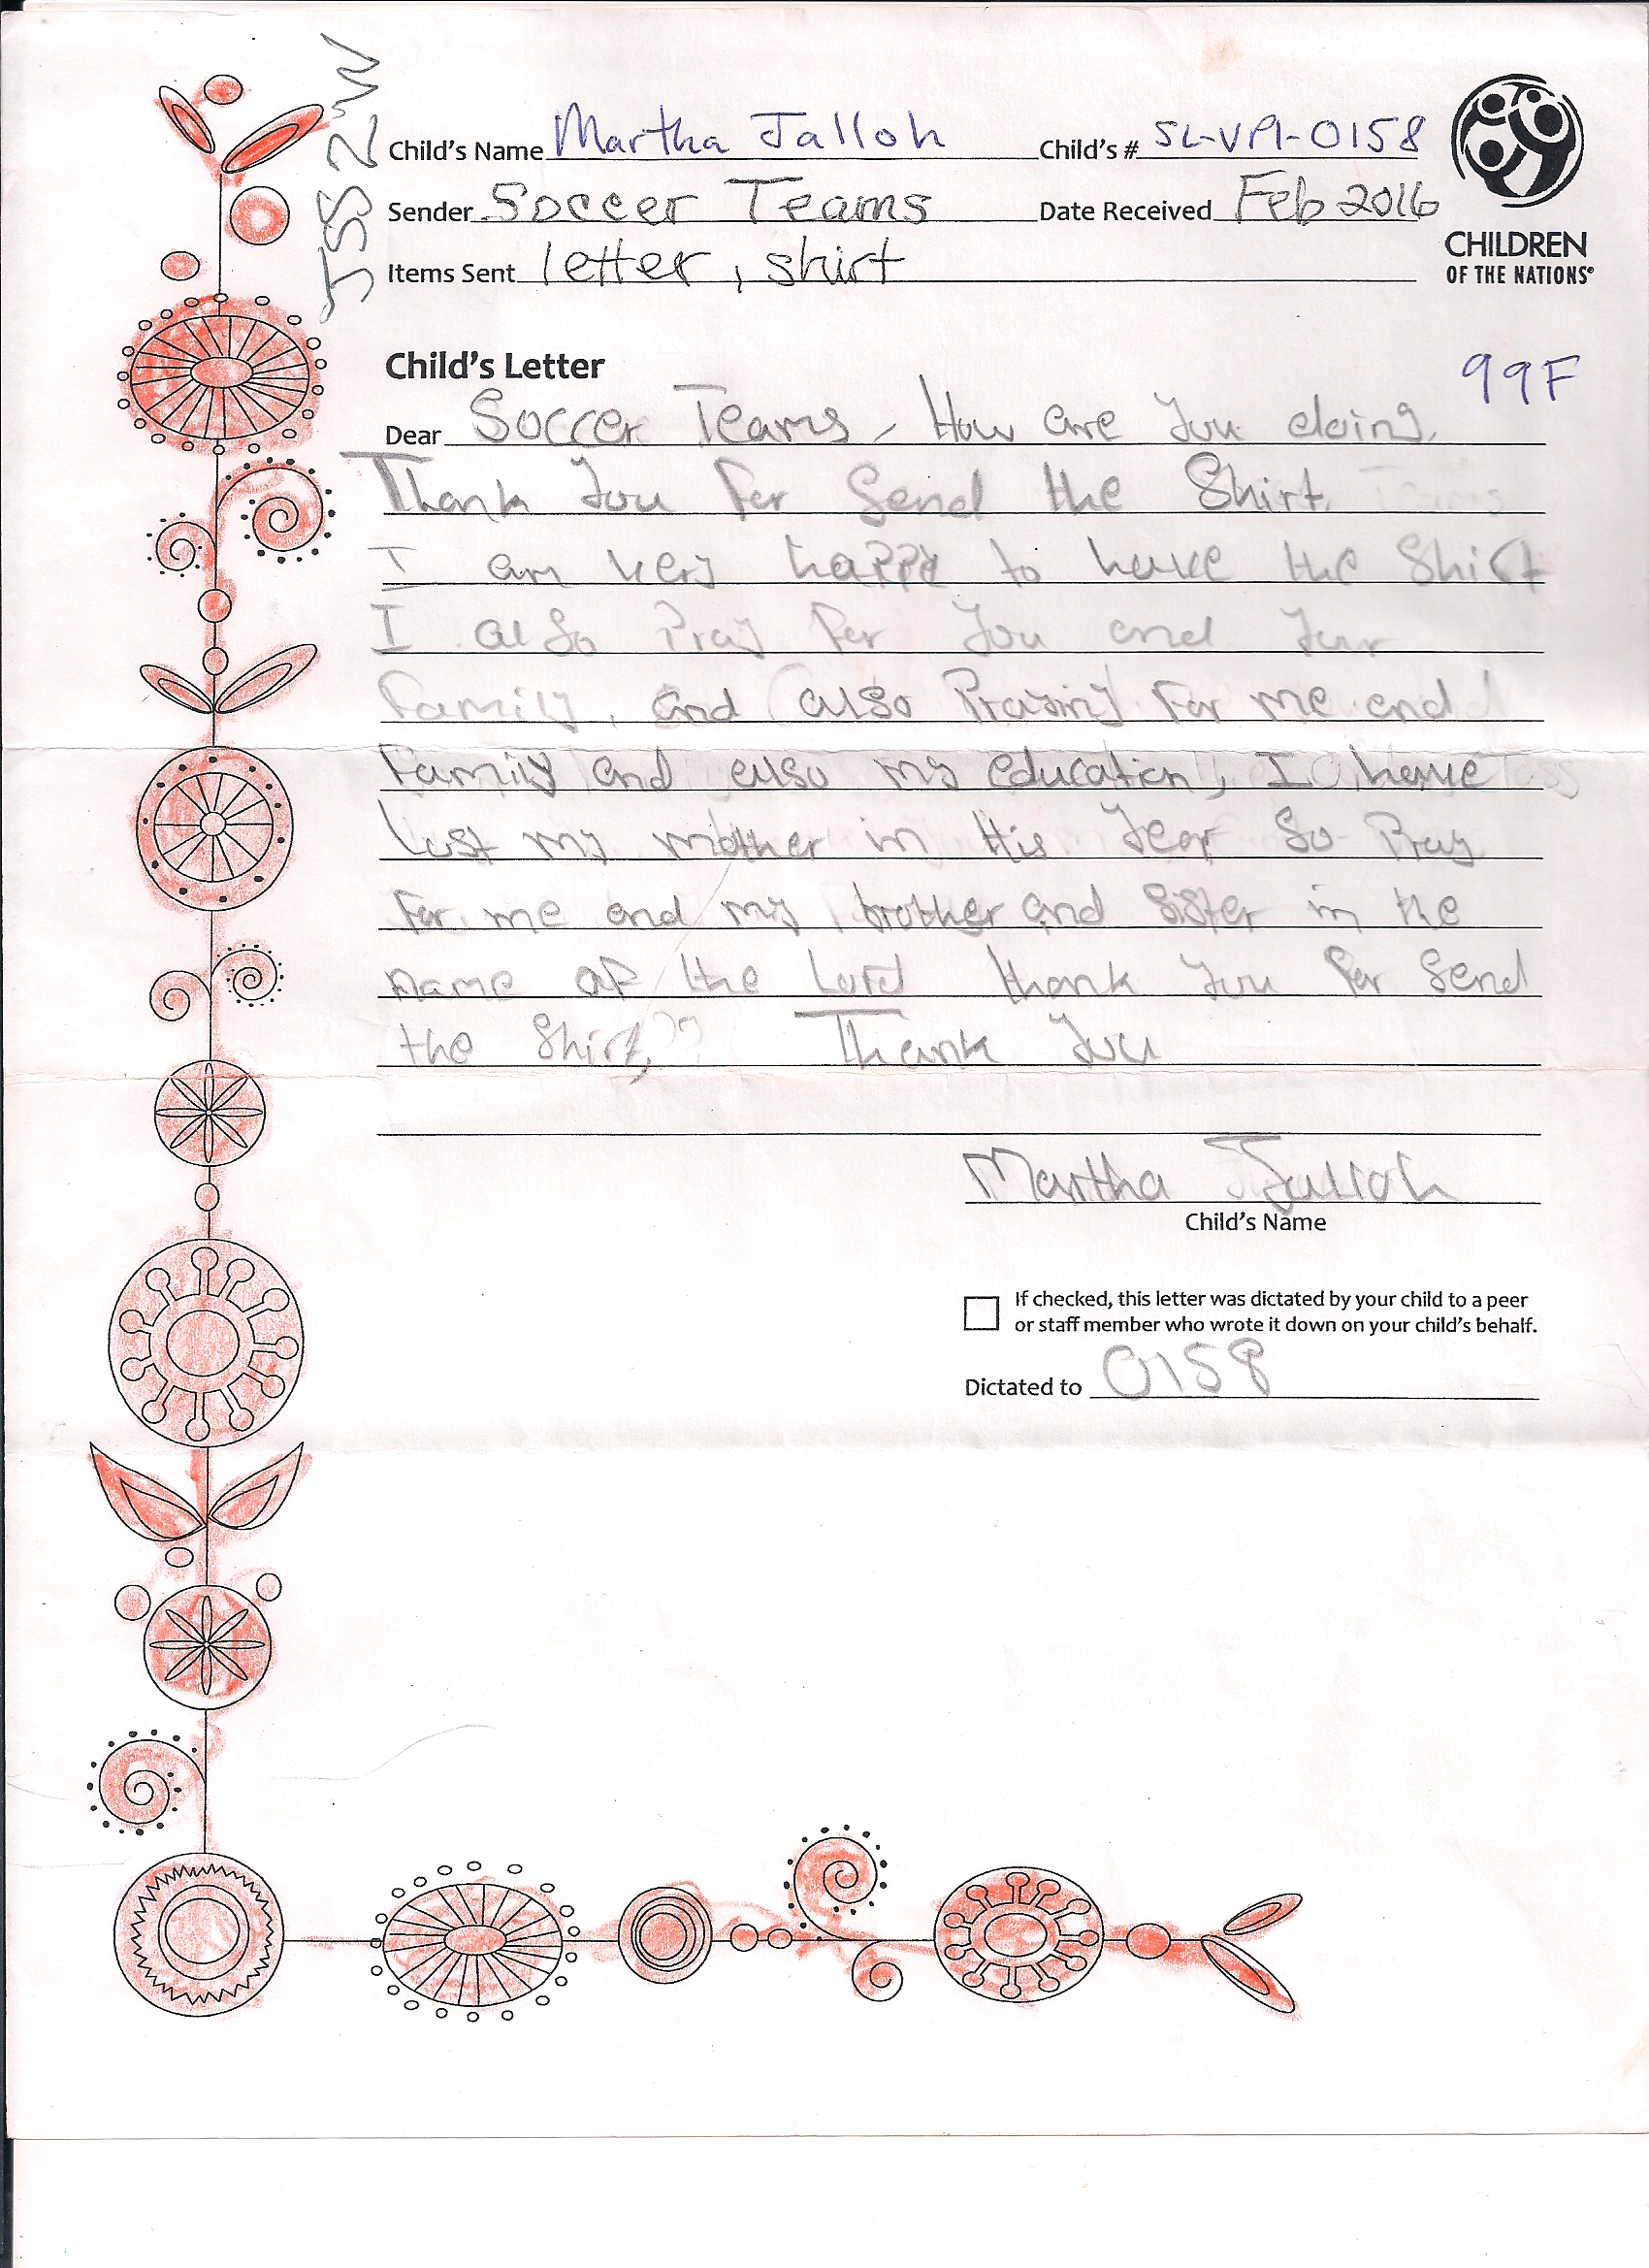 JSS 2 W
Child's Name Martha Jalloh Child's # SL-VPI-0158
Sender Soccer Teams Date Received Feb 2016
Items Sent letter, shirt
CHILDREN
OF THE NATIONS®
99F
Child's Letter
Dear Soccer Teams, How are you doing.
Thank you for send the Shirt.
I am very happy to have the Shirt
I also Pray for you and your
Family. and also Praying for me and
Family and also my education, I have
lost my mother in this year So Pray
For me and my brother and Sister in the
name of the Lord thank you for Send
the Shirt, Thank you
Martha Jalloh
Child's Name
If checked, this letter was dictated by your child to a peer
or staff member who wrote it down on your child's behalf.
Dictated to 0158